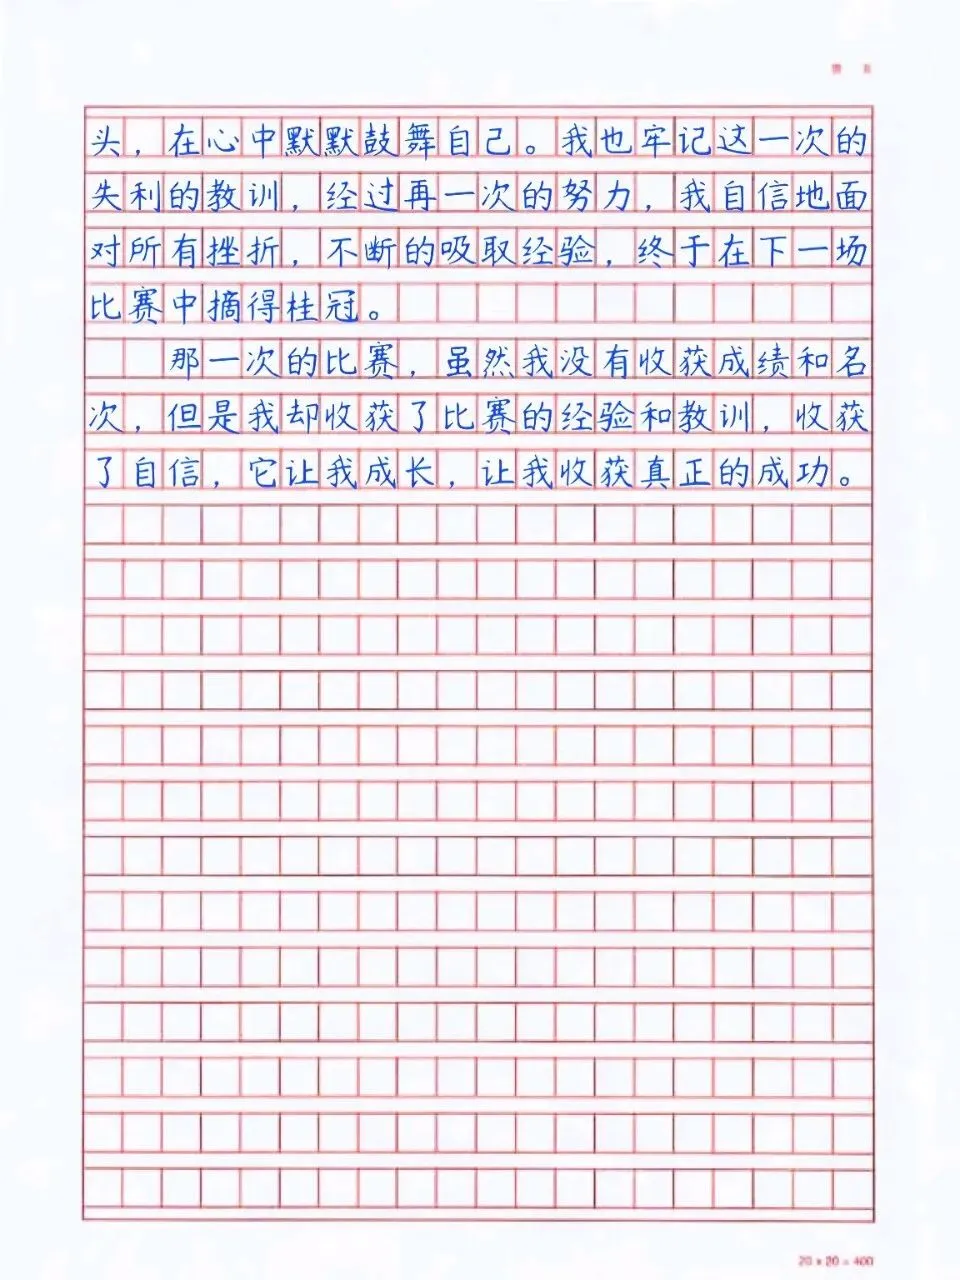 头，在心中默默鼓舞自己。我也牢记这一次的
失利的教训，经过再一次的努力，我自信地面
对所有挫折，不断的吸取经验，终于在下一场
比赛中摘得桂冠。
那一次的比赛，虽然我没有收获成绩和名
次，但是我却收获了比赛的经验和教训，收获
了自信，它让我成长，让我收获真正的成功。
20×20=400